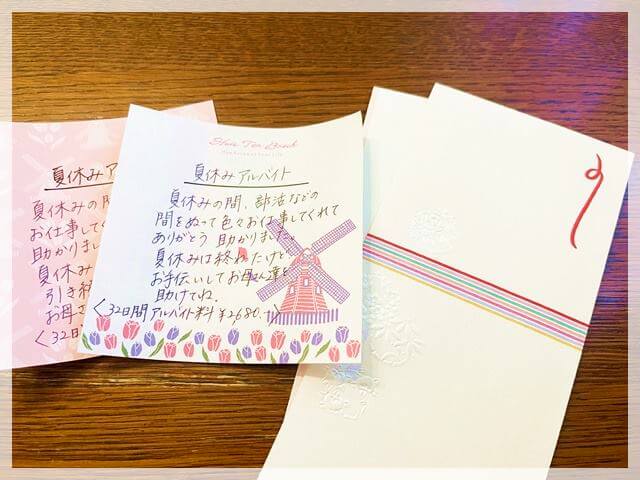 夏休みア
夏休みの間
お仕事してく
助かりまし
夏休み
引き続
お母さ
〈32日
夏休みアルバイト
夏休みの間、部活などの
間をぬって色々お仕事してくれて
ありがとう 助かりました。
夏休みは終わたけど
お手伝いしてお母さん達を
助けてね。
〈32日間アルバイト料¥2680.-〉